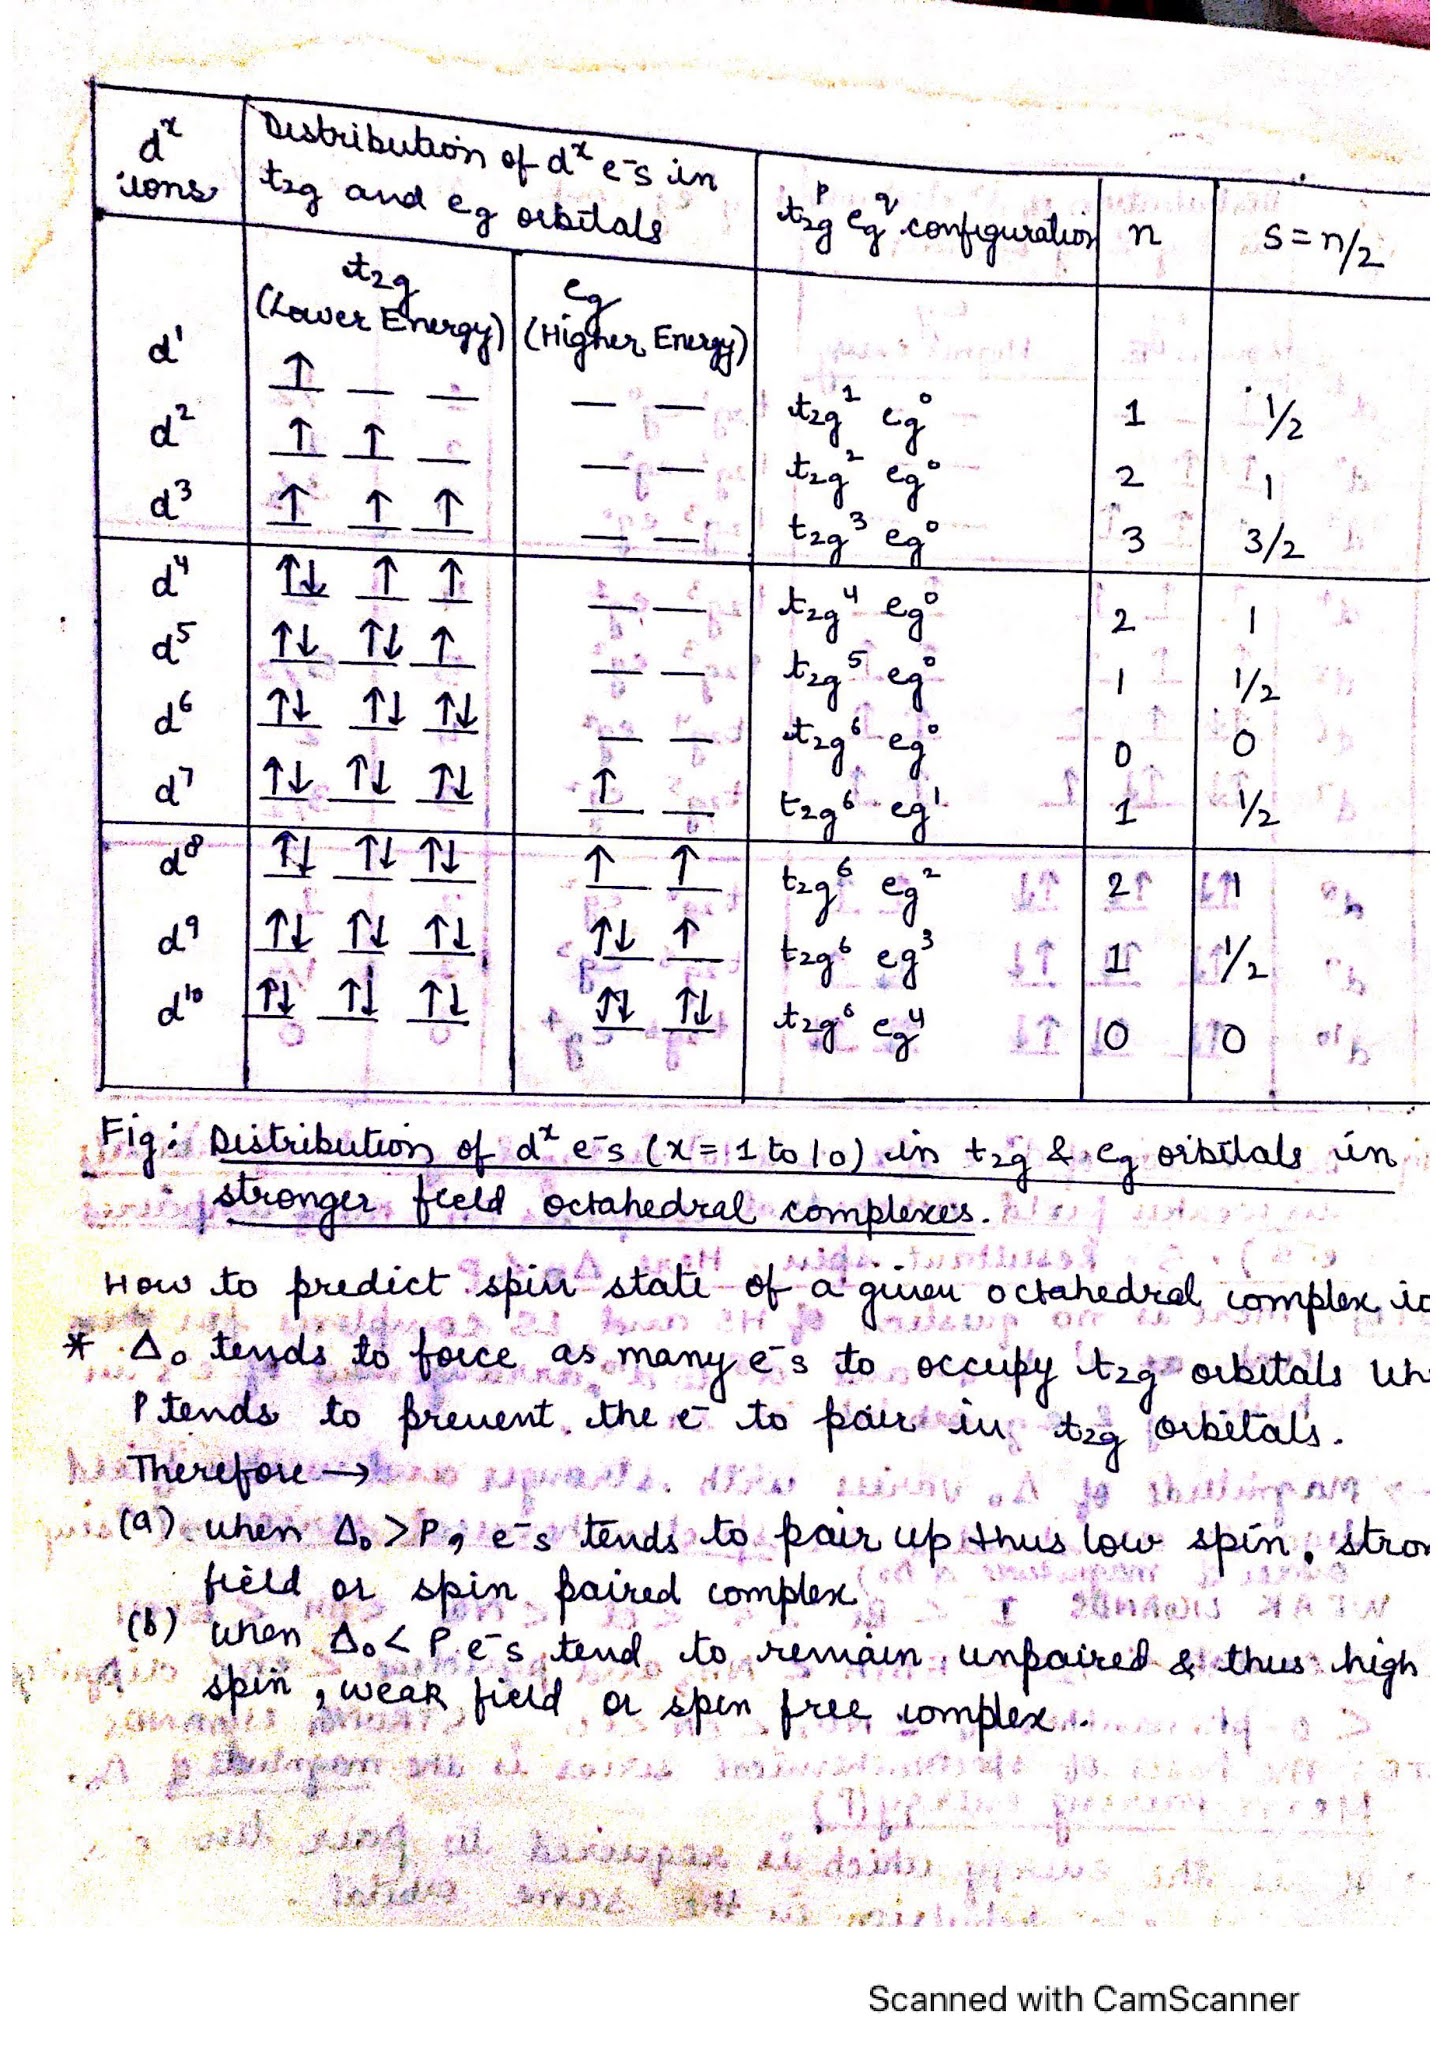 dˣ ions
Distribution of dˣ e⁻s in
t₂g and eg orbitals
t₂gᵖ egᑫ configuration
n
S = n/2
t₂g
(Lower Energy)
eg
(Higher Energy)
d¹ ↑ _ _ _ _ t₂g¹ eg⁰ 1 1/2
d² ↑ ↑ _ _ _ t₂g² eg⁰ 2 1
d³ ↑ ↑ ↑ _ _ t₂g³ eg⁰ 3 3/2
d⁴ ↑↓ ↑ ↑ _ _ t₂g⁴ eg⁰ 2 1
d⁵ ↑↓ ↑↓ ↑ _ _ t₂g⁵ eg⁰ 1 1/2
d⁶ ↑↓ ↑↓ ↑↓ _ _ t₂g⁶ eg⁰ 0 0
d⁷ ↑↓ ↑↓ ↑↓ ↑ _ t₂g⁶ eg¹ 1 1/2
d⁸ ↑↓ ↑↓ ↑↓ ↑ ↑ t₂g⁶ eg² 2 1
d⁹ ↑↓ ↑↓ ↑↓ ↑↓ ↑ t₂g⁶ eg³ 1 1/2
d¹⁰ ↑↓ ↑↓ ↑↓ ↑↓ ↑↓ t₂g⁶ eg⁴ 0 0
Fig: Distribution of dˣ e⁻s (x = 1 to 10) in t₂g & eg orbitals in
stronger field octahedral complexes.
How to predict spin state of a given octahedral complex
* Δ₀ tends to force as many e⁻s to occupy t₂g orbitals
P tends to prevent the e⁻ to pair in t₂g orbitals.
Therefore →
(a) when Δ₀ > P, e⁻s tends to pair up thus low spin, stron
field or spin paired complex
(b) when Δ₀ < P e⁻s tend to remain unpaired & thus high
spin, weak field or spin free complex.
Scanned with CamScanner